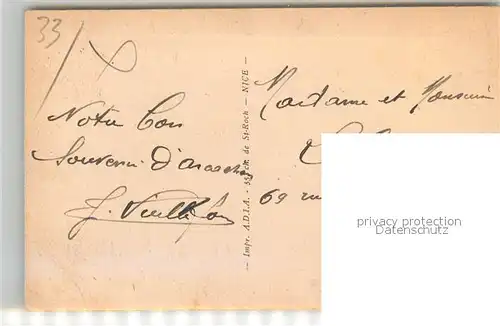 33
Notre Bon
Souvenir d'arcachon
Impr. A.D.I.A. - ch. de St-Roch - NICE -
Madame et Monsieur
69 ru
privacy protection
Datenschutz